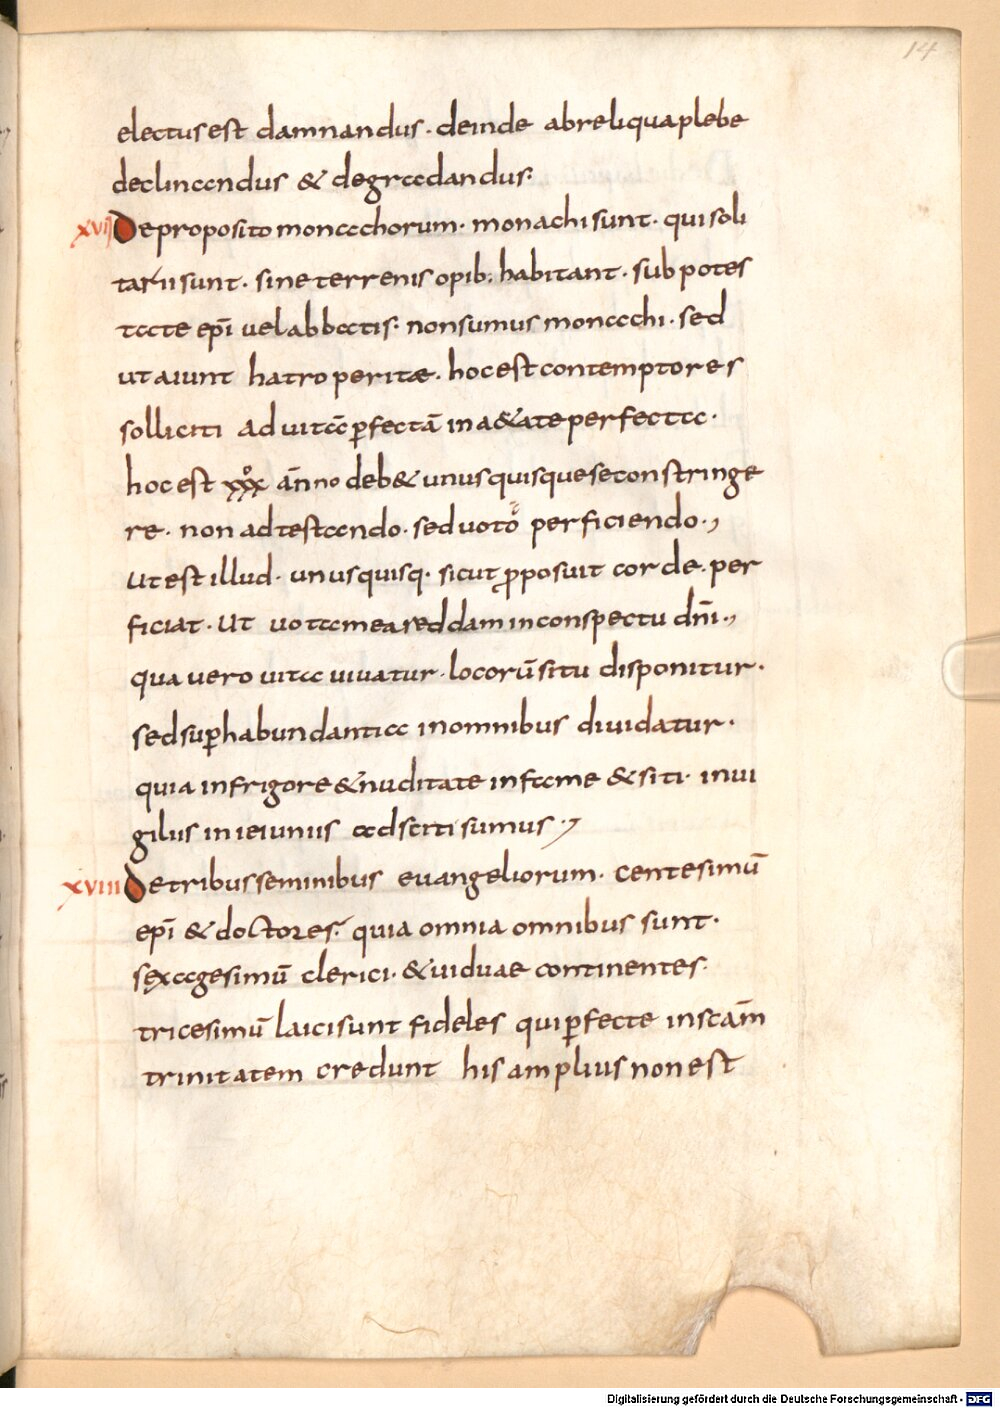 14
electus est damnandus. deinde ab reliqua plebe
declinandus & degradandus.
XVII De proposito monachorum. monachi sunt. qui soli
tarii sunt. sine terrenis opib; habitant. sub potes
tate epī uel abbatis. non sumus monachi. sed
ut aiunt hatroperitæ. hoc est contemptores
solliciti ad uitā pfectā in a&ate perfecta.
hoc est xxx̊ anno deb& unus quisque se constringe
re. non adtestando. sed uoto perficiendo.,
Ut est illud. unusquisq. sicut pposuit corde. per
ficiat. Ut uota mea reddam in conspectu dn̄i.,
qua uero uita uiuatur. locorū situ disponitur.
sed suphabundantia in omnibus diuidatur.
quia in frigore & nuditate in fame & siti. in ui
giliis in ieiuniis adsciti sumus.,
XVIII De tribus seminibus euangeliorum. centesimū
epī & doctores. quia omnia omnibus sunt.
sexagesimū clerici. & uiduae continentes.
tricesimū laici sunt fideles qui pfecte in scām
trinitatem credunt his amplius non est
Digitalisierung gefördert durch die Deutsche Forschungsgemeinschaft - DFG